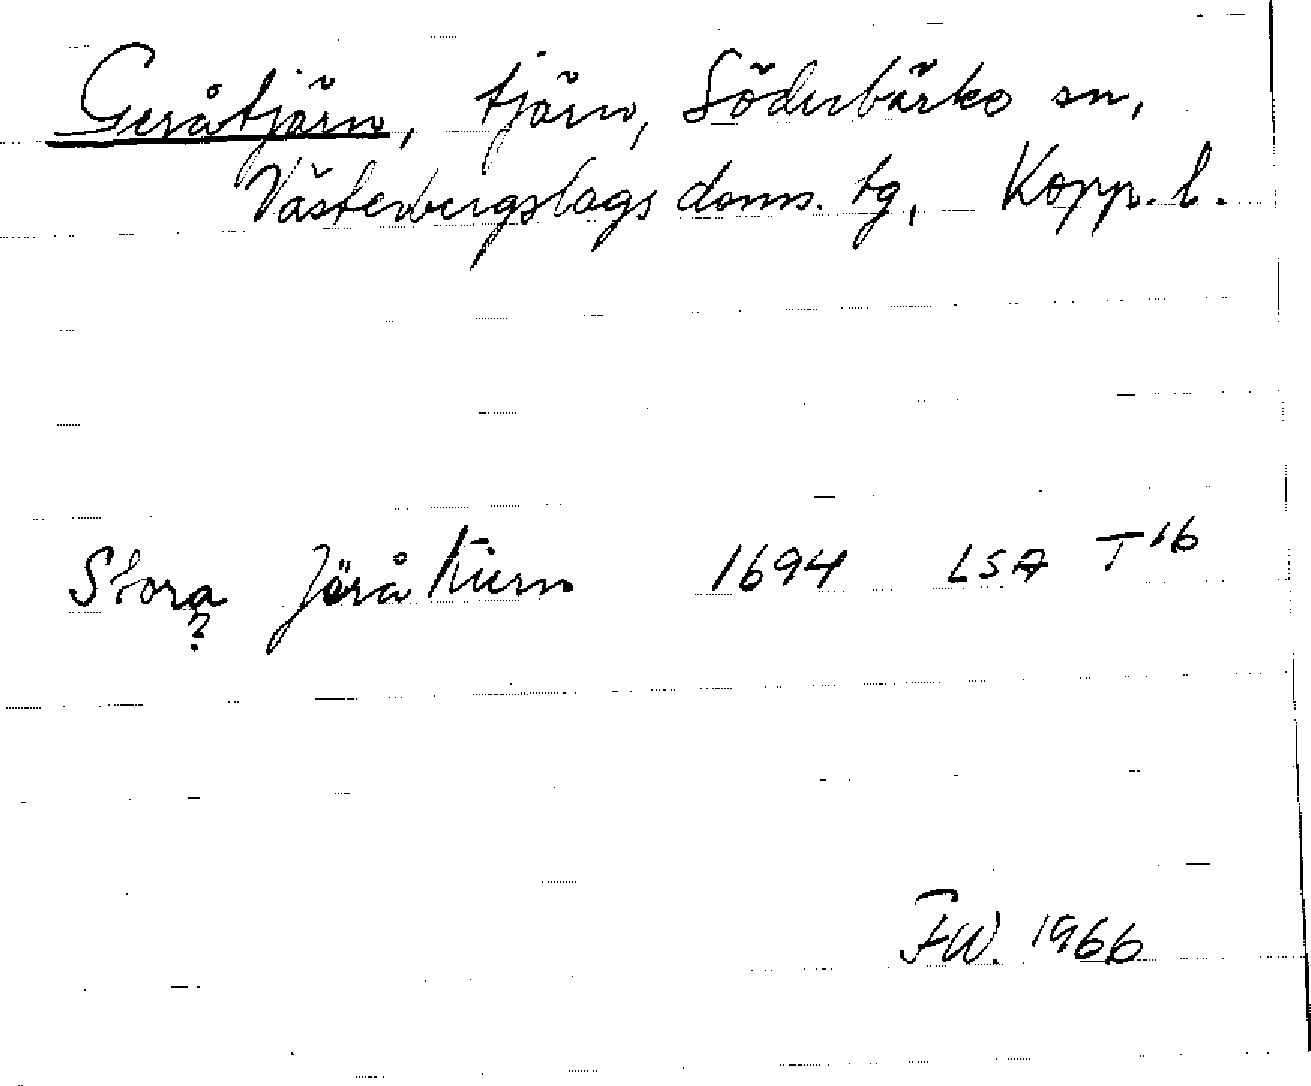 Geråtjärn, tjärn, Söderbärke sn,
Västerbergslags doms. tg, Kopp. l.
Stora Jörå Kiern 1694 LSA T 16
?
FW. 1966